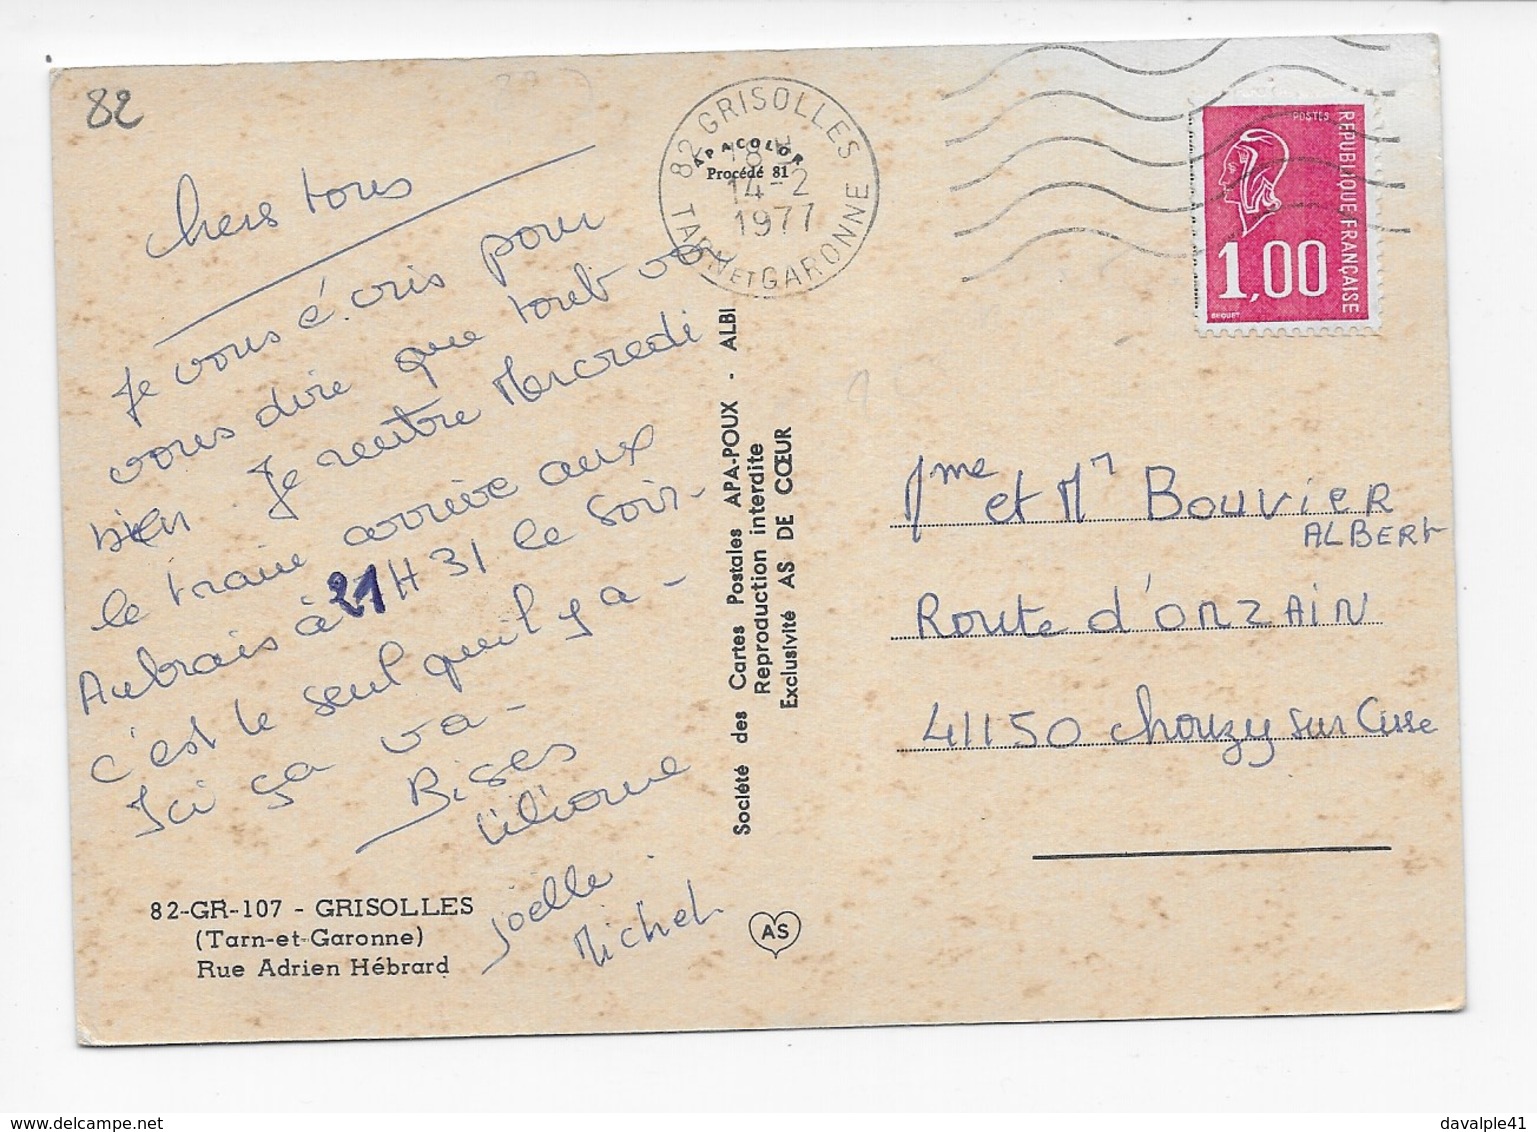 82
chers tous
Je vous é.cris pour
vous dire que tout va
bien. Je rentre Mercredi
le train arrive aux
Aubrais à 21H31 le soir-
c'est le seul qu'il y a-
Ici ça va-
Bises
Liliane
Joëlle
Michel
82-GR-107 - GRISOLLES
(Tarn-et-Garonne)
Rue Adrien Hébrard
82 GRISOLLES
18H
14-2
1977
TARN ET GARONNE
APACOLOR
Procédé 81
Société des Cartes Postales APA-POUX - ALBI
Reproduction interdite
Exclusivité AS DE CŒUR
AS
POSTES
REPUBLIQUE FRANÇAISE
1,00
BEQUET
Mme et Mr BOUVIER
ALBERT
Route d'ONZAIN
41150 chouzy sur Cisse
www.delcampe.net
davalple41